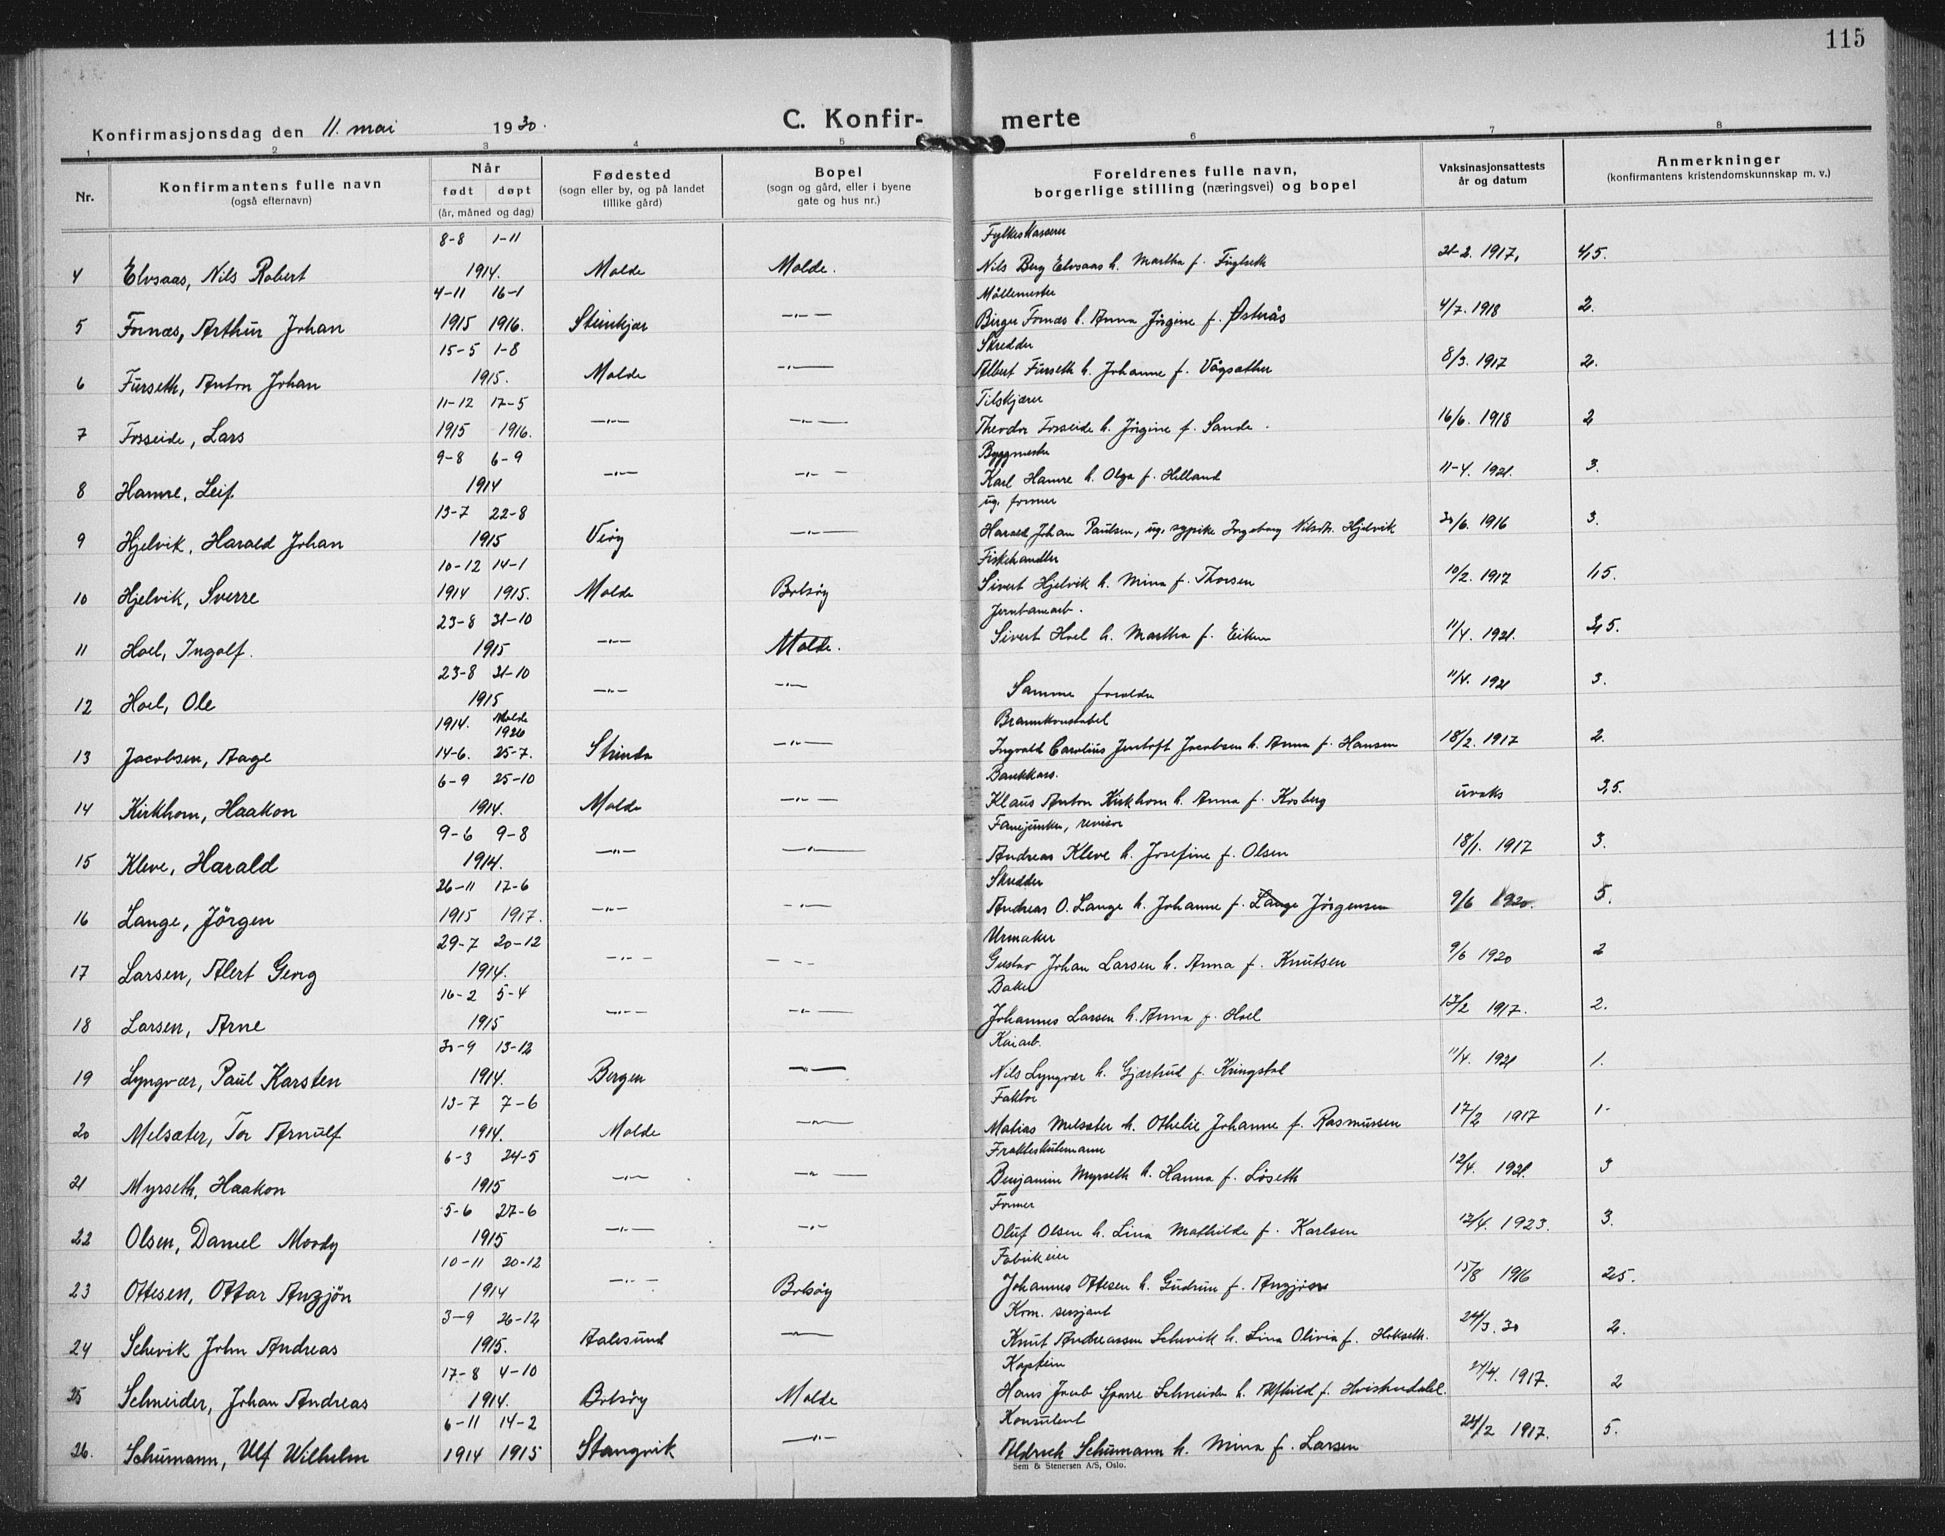 115
Konfirmasjonsdag den 11. mai 1930.
C. Konfir- merte
1 2 3 4 5 6 7 8
Nr. Konfirmantens fulle navn (også efternavn) Når født døpt (år, måned og dag) Fødested (sogn eller by, og på landet tillike gård) Bopel (sogn og gård, eller i byene gate og hus nr.) Foreldrenes fulle navn, borgerlige stilling (næringsvei) og bopel Vaksinasjonsattests år og datum Anmerkninger (konfirmantens kristendomskunnskap m. v.)
8-8 1-11 Fylkeskasserer
4 Elvsaas, Nils Robert 1914. Molde Molde. Nils Berg Elvsaas h. Martha f. Fuglseth 21-2. 1917, 4,5.
4-11 16-1 Møllemester
5 Fornæs, Arthur Johan 1915 1916. Steinkjær -"- Birger Fornæs h. Anna Jørgine f. Østnås 4/7. 1918 2.
15-5 1-8 Skredder
6 Furseth, Anton Johan 1915. Molde -"- Albert Furseth h. Johanne f. Vågsæther 8/3. 1917 2.
11-12 17-5 Tilskjærer
7 Fosseide, Lars 1915 1916. -"- -"- Theodor Fosseide h. Jørgine f. Sande. 16/6. 1918 2
9-8 6-9 Byggmester
8 Hamre, Leif 1914 -"- -"- Karl Hamre h. Olga f. Helland 11-4. 1921. 3.
13-7 22-8 ug. former
9 Hjelvik, Harald Johan 1915 Veøy -"- Harald Johan Paulsen, ug. sypike Ingeborg Nilsdtr. Hjelvik 30/6. 1916 3.
10-12 14-1 Fiskehandler
10 Hjelvik, Sverre 1914 1915. Molde Bolsøy Sivert Hjelvik h. Mina f. Thorsen 10/2. 1917 1,5.
23-8 31-10 Jernbanearb.
11 Hoel, Ingolf. 1915 -"- Molde. Sivert Hoel h. Martha f. Eiken 11/4. 1921. 3,5.
23-8 31-10
12 Hoel, Ole 1915 -"- -"- Samme foreldre 11/4. 1921 3.
1914. Molde 1926 Brannkonstabel
13 Jacobsen, Aage 14-6. 25-7. Strinda -"- Ingvald Carolius Jentoft Jacobsen h. Anna f. Hansen 18/2. 1917 2.
6-9 25-10 Bankkass.
14 Kirkhorn, Haakon 1914. Molde -"- Klaus Anton Kirkhorn h. Anna f. Kosberg uvaks 3,5.
9-6 9-8 Fanejunker, revisor
15 Kleve, Harald 1914. -"- -"- Andreas Kleve h. Josefine f. Olsen 18/1. 1917 3.
26-11 17-6 Skredder
16 Lange, Jörgen 1915 1917. -"- -"- Andreas O. Lange h. Johanne f. Lange Jörgensen 9/6 1920. 5.
29-7 20-12 Urmaker
17 Larsen, Alert Georg 1914. -"- -"- Gustav Johan Larsen h. Anna f. Knutsen 9/6 1920 2
16-2 5-4 Baker
18 Larsen, Arne 1915 -"- -"- Johannes Larsen h. Anna f. Hoel 13/2 1917. 2.
30-9 13-12 Kaiarb.
19 Lyngvær, Paul Karsten 1914. Bergen -"- Nils Lyngvær h. Gjertrud f. Kringstad 11/4. 1921 1.
13-7 7-6 Faktor
20 Melsæter, Tor Arnulf 1914. Molde -"- Matias Melsæter h. Othelie Johanne f. Rasmussen 17/2 1917 1-
6-3 24-5
21 Myrseth, Haakon 1915 -"- -"- Benjamin Myrseth h. Hanna f. Löseth 12/4. 1921. 3
5-6 27-6 Former
22 Olsen, Daniel Moody 1915 -"- -"- Oluf Olsen h. Lina Mathilde f. Karlsen 12/4. 1923. 3.
10-11 20-12 Fabrikeier
23 Ottesen, Ottar Anzjön 1914 -"- Bolsøy Johannes Ottesen h. Gudrun f. Anzjøn 15/8 1916 2,5.
3-9 26-12 Kom. sersjant
24 Schevik John Andreas 1915. Aalesund -"- Knut Andreassen Schevik h. Lina Olivia f. Hokseth. 24/3. 30 2.
17-8 4-10 Kaptein
25 Schneider, Johan Andreas 1914. Bolsøy Molde Hans Jacob Sparre Schneider h. Alfhild f. Hvistendahl. 27/4. 1917. 2
6-11 14-2 Konsulent
26. Schumann, Ulf Wilhelm 1914 1915 Stangvik -"- Aldrich Schumann h. Mina f. Larsen 24/2 1917. 5.
Sem & Stenersen A/S, Oslo.